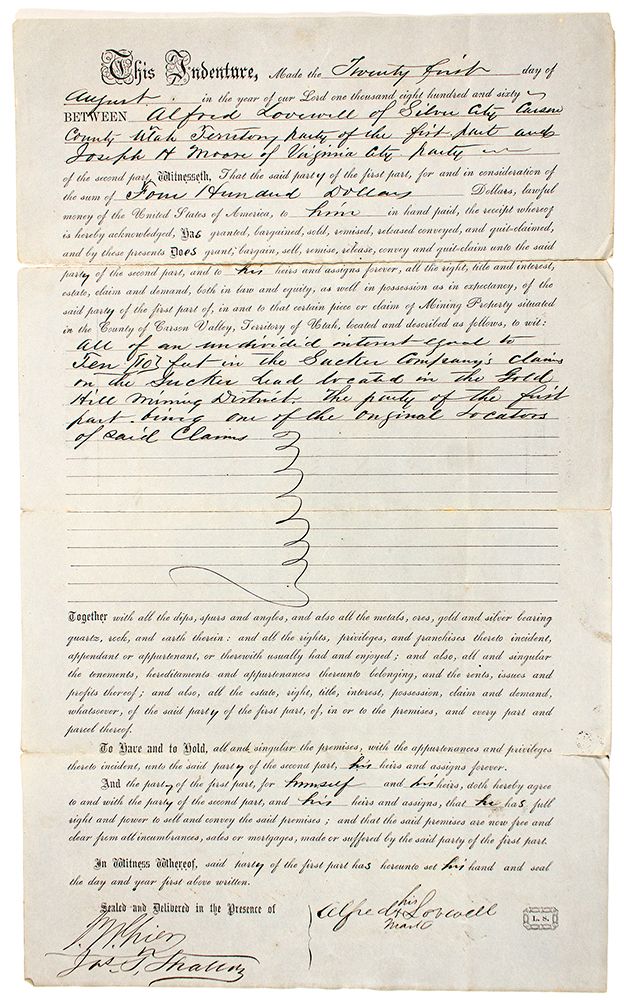 This Indenture, Made the Twenty first day of
August in the year of our Lord one thousand eight hundred and sixty
BETWEEN Alfred Lovewell of Silver City Carson
County Utah Territory party of the first part and
Joseph H Moore of Virginia City party
of the second part, Witnesseth, That the said party of the first part, for and in consideration of
the sum of Four Hundred Dollars Dollars, lawful
money of the United States of America, to him in hand paid, the receipt whereof
is hereby acknowledged, Has granted, bargained, sold, remised, released conveyed, and quit-claimed,
and by these presents Does grant, bargain, sell, remise, release, convey and quit-claim unto the said
party of the second part, and to his heirs and assigns forever, all the right, title and interest,
estate, claim and demand, both in law and equity, as well in possession as in expectancy, of the
said party of the first part of, in and to that certain piece or claim of Mining Property situated
in the County of Carson Valley, Territory of Utah, located and described as follows, to wit:
All of an undivided interest equal to
Ten (10) feet in the Sucker Company's Claims
on the Sucker lead located in the Gold
Hill Mining District. The party of the first
part being one of the original Locators
of said Claims
Together with all the dips, spurs and angles, and also all the metals, ores, gold and silver bearing
quartz, rock, and earth therein: and all the rights, privileges, and franchises thereto incident,
appendant or appurtenant, or therewith usually had and enjoyed; and also, all and singular
the tenements, hereditaments and appurtenances thereunto belonging, and the rents, issues and
profits thereof; and also, all the estate, right, title, interest, possession, claim and demand,
whatsoever, of the said party of the first part, of, in or to the premises, and every part and
parcel thereof.
To Have and to Hold, all and singular the premises, with the appurtenances and privileges
thereto incident, unto the said party of the second part, his heirs and assigns forever.
And the party of the first part, for himself and his heirs, doth hereby agree
to and with the party of the second part, and his heirs and assigns, that he has full
right and power to sell and convey the said premises; and that the said premises are now free and
clear from all incumbrances, sales or mortgages, made or suffered by the said party of the first part.
In Witness Whereof, said party of the first part has hereunto set his hand and seal
the day and year first above written.
Sealed and Delivered in the Presence of
his
Alfred X Lovewell
mark
L. S.
Jos. T.